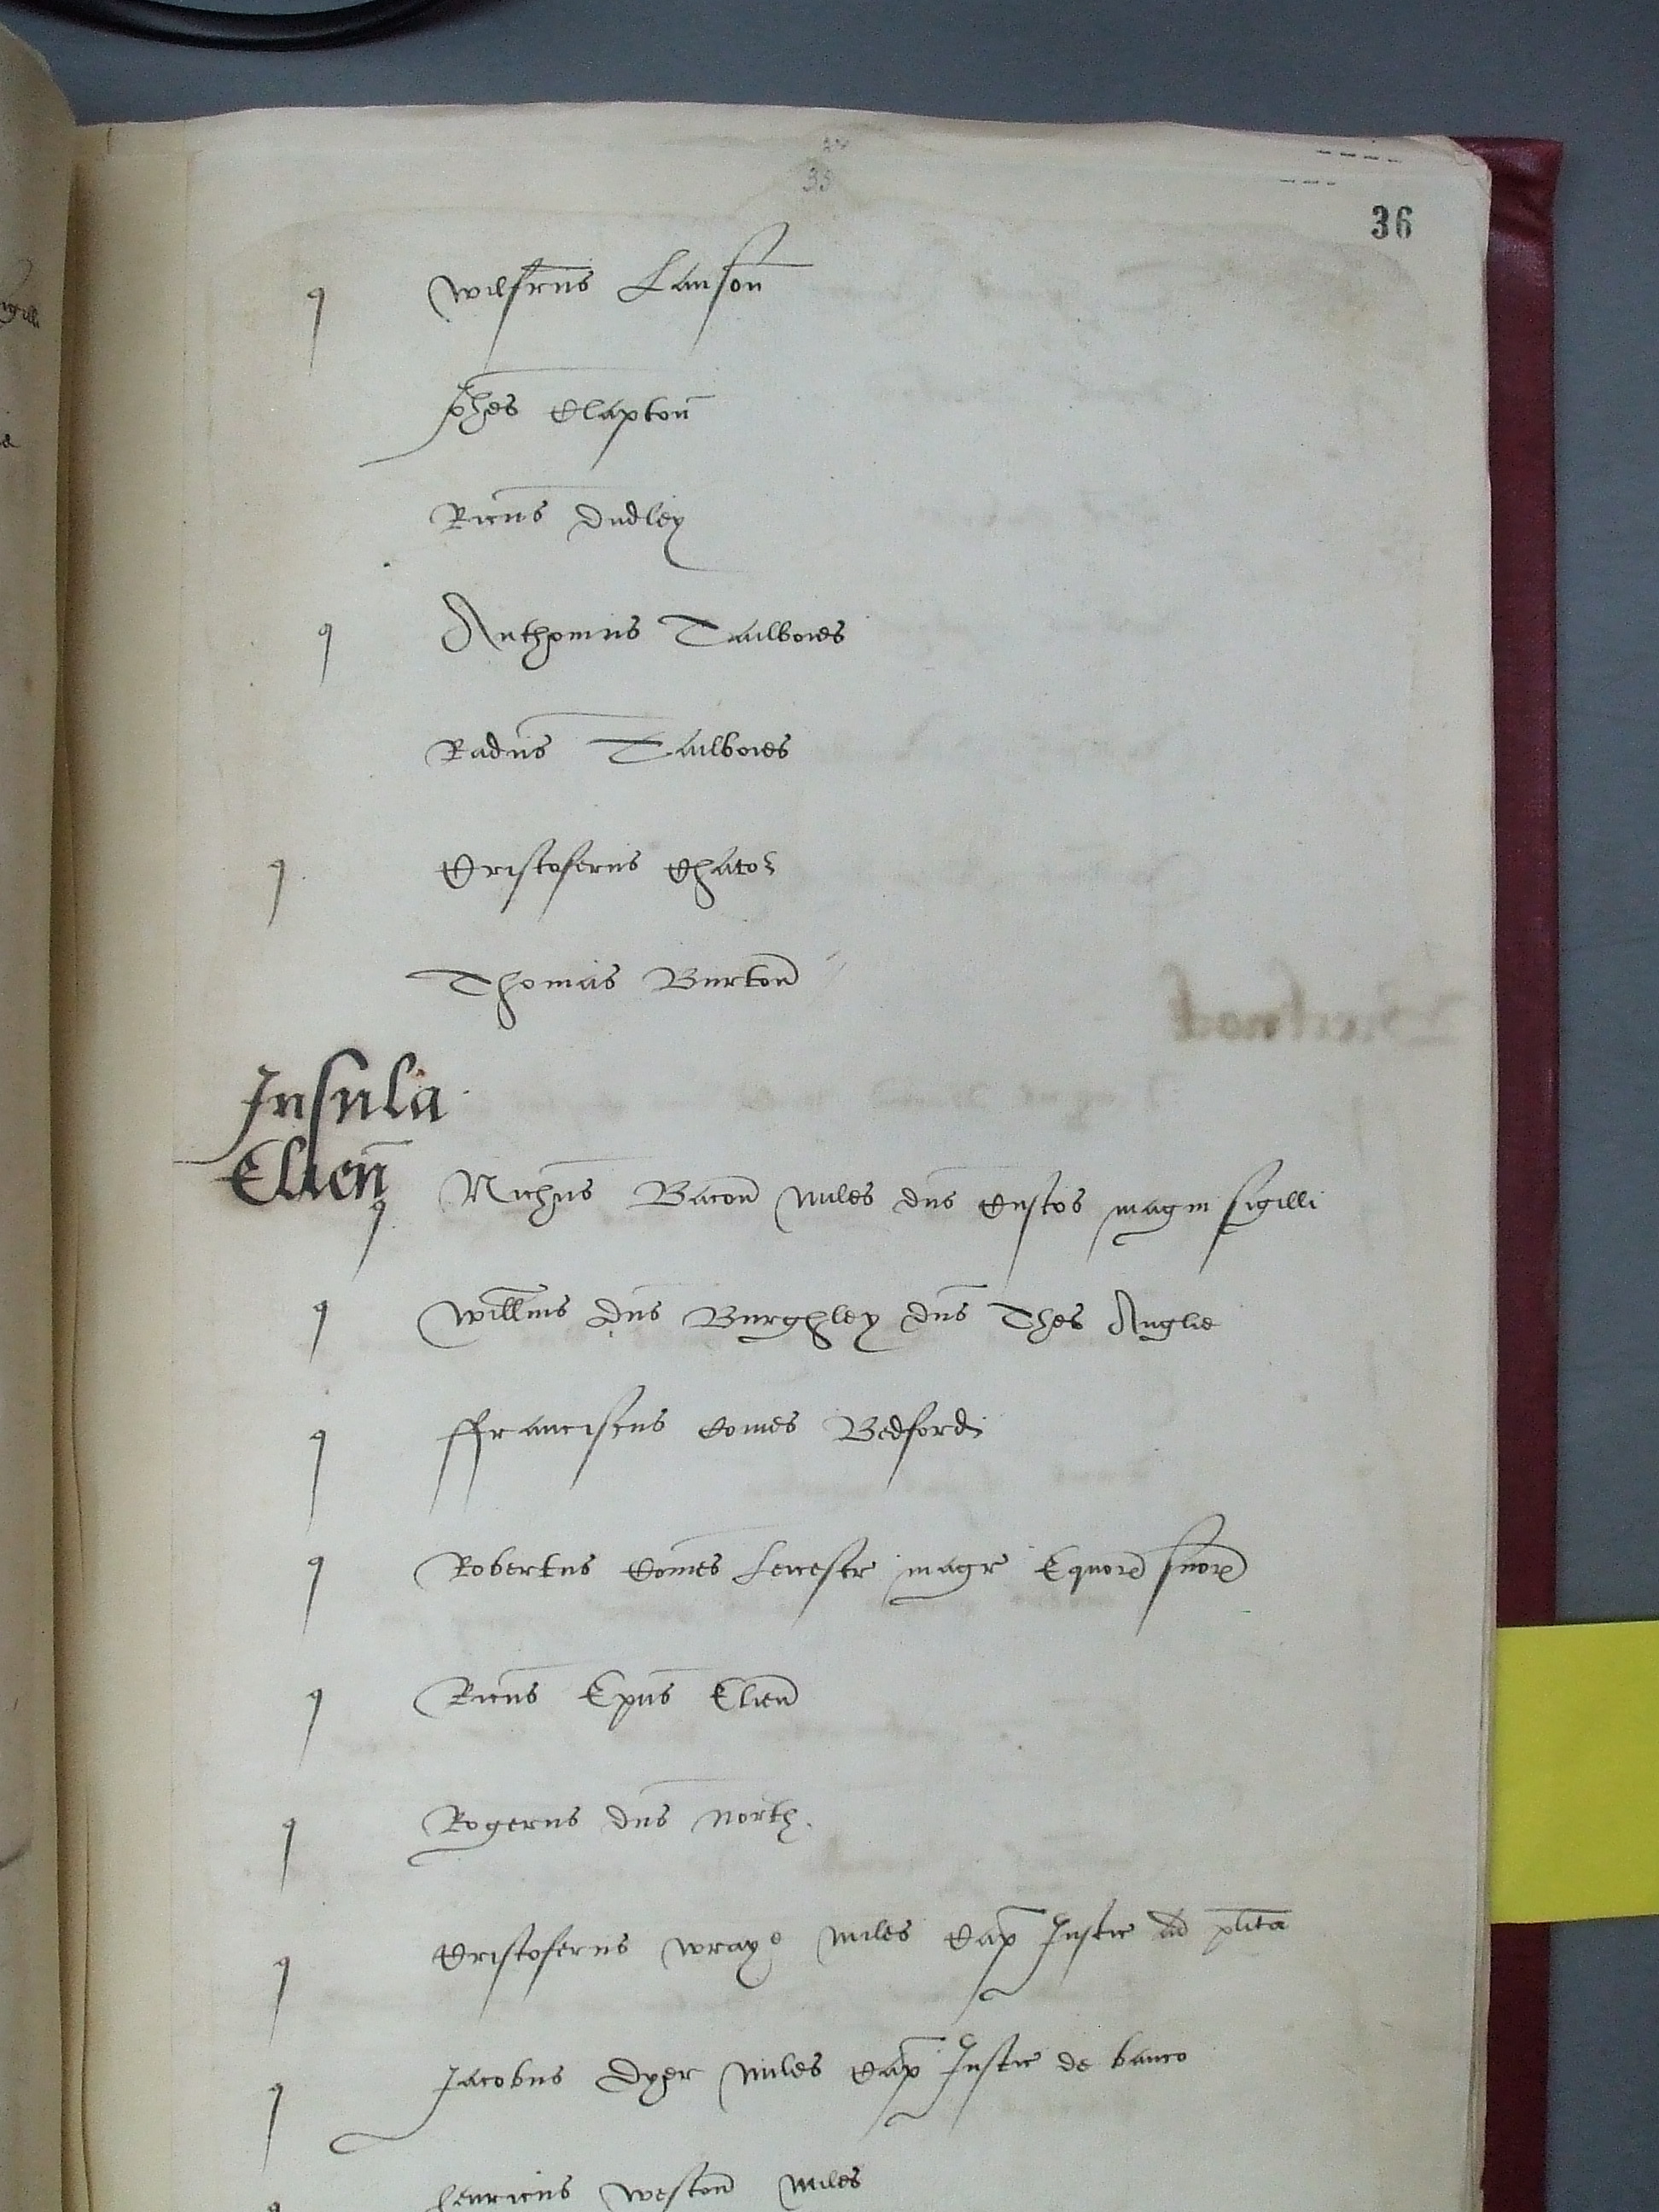 36
q Wilfrus Lauson
Johes Clapton
Ricus Dudley
q Anthonius Tailboies
Radus Tailboies
q Cristoferus Chator
Thomas Burton
Insula
Elien
q Nichus Bacon miles dns Custos magni sigilli
q Willms dns Burghley dns Thes Anglie
q ffranciscus Comes Bedford
q Robertus Comes Leicestr magr Equor suor
q Ricus Epus Elien
q Rogerus dns North.
q Cristoferus Wraye miles Cap Justic ad plita
q Jacobus Dyer miles Cap Justic de banco
q henricus Weston miles